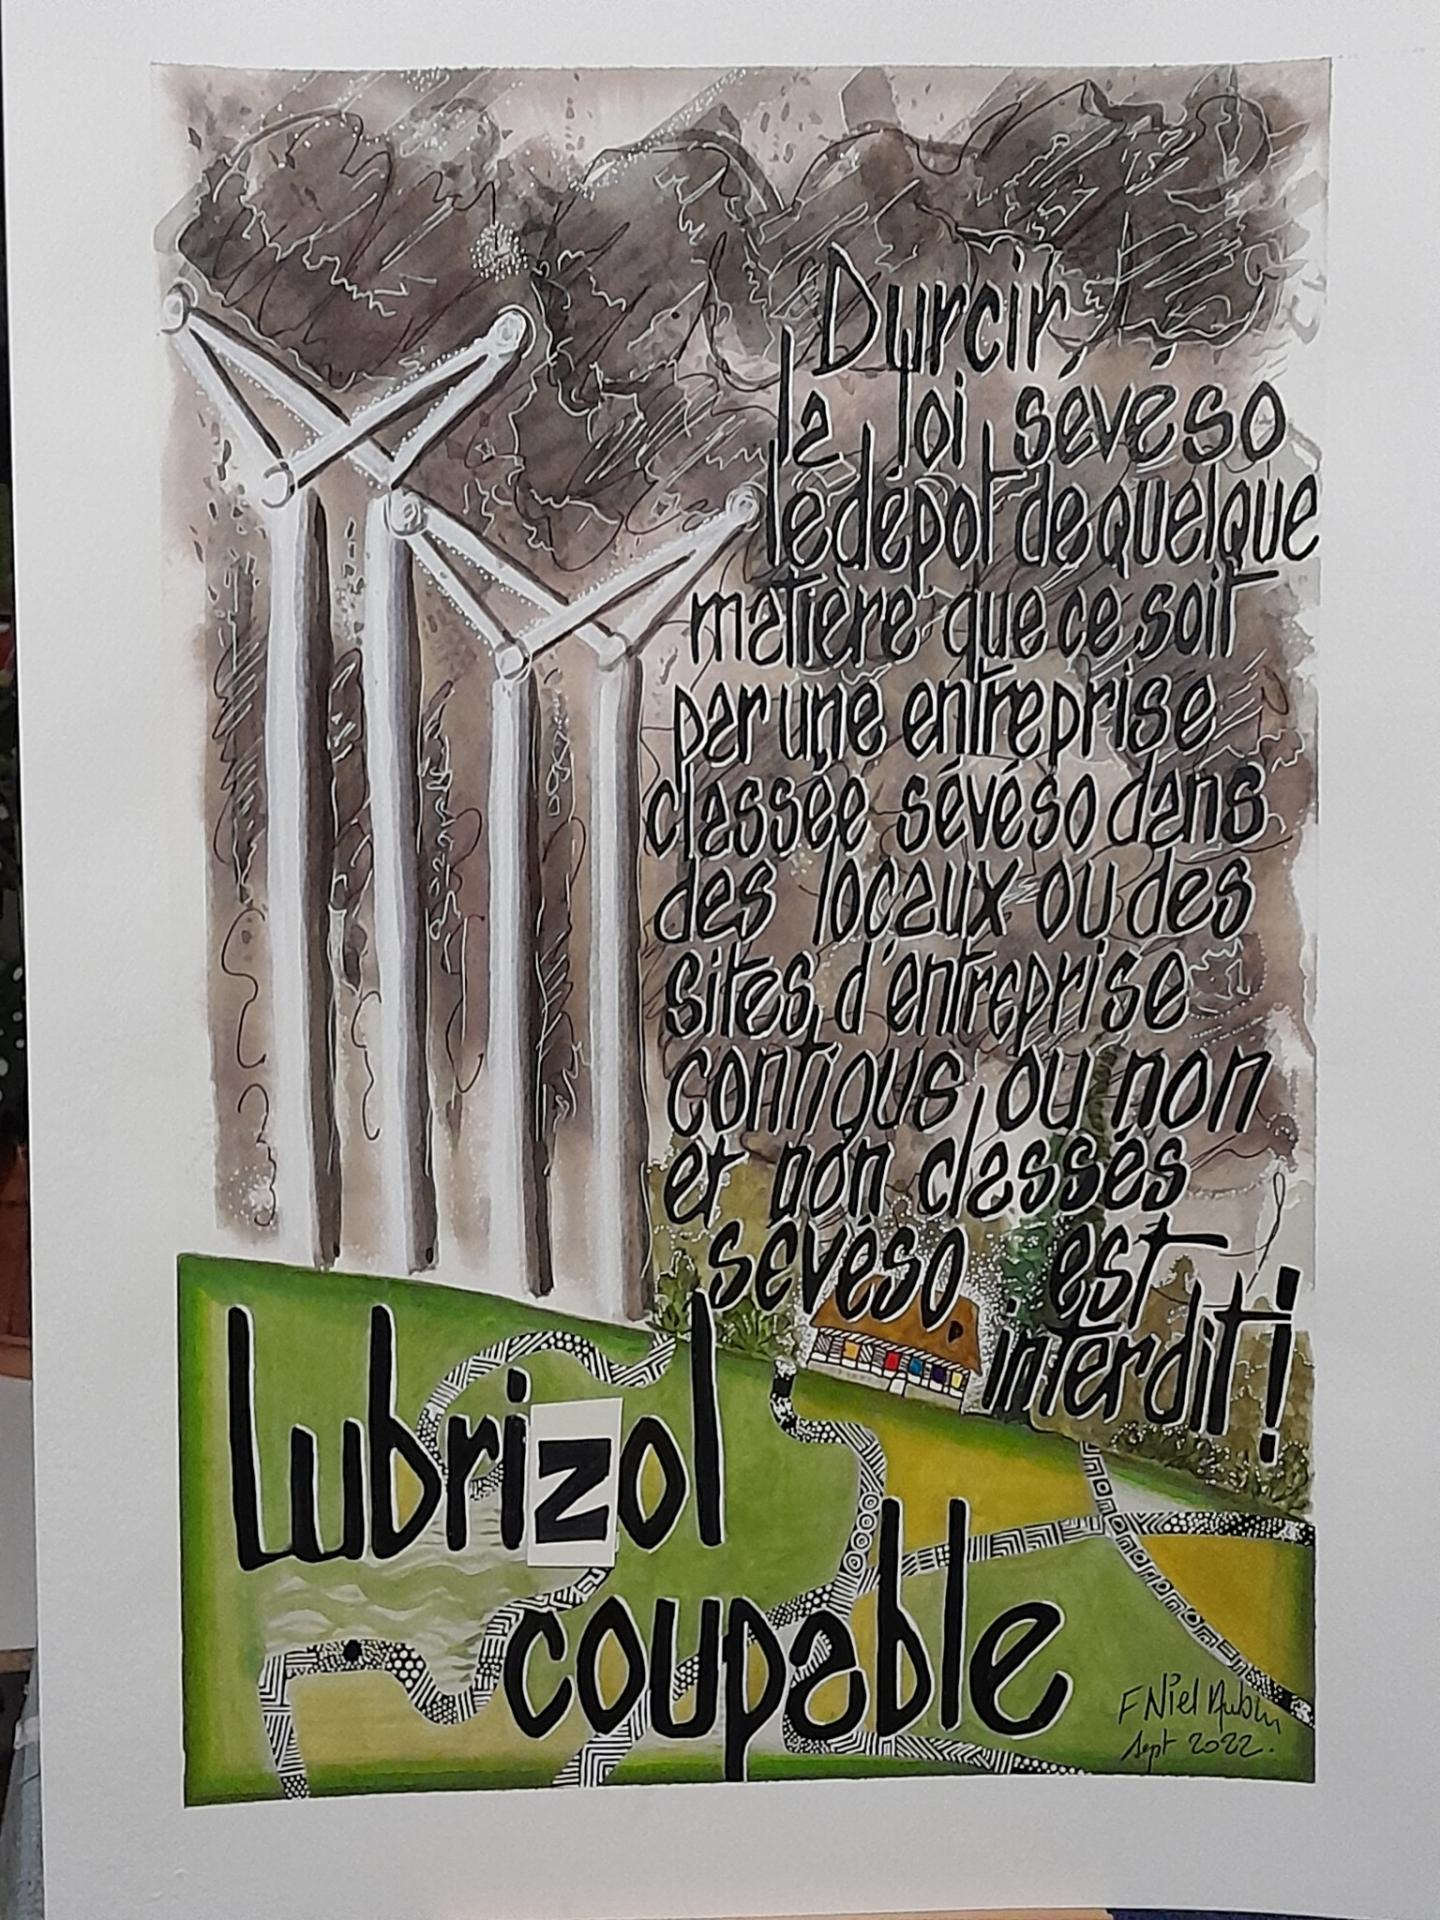 Durcir
la loi sévéso
le dépot de quelque
matière que ce soit
par une entreprise
classée sévéso dans
des locaux ou des
sites d'entreprise
contigus ou non
et non classés
sévéso, est
interdit !
lubrizol
coupable
F Niel Aubin
Sept 2022.